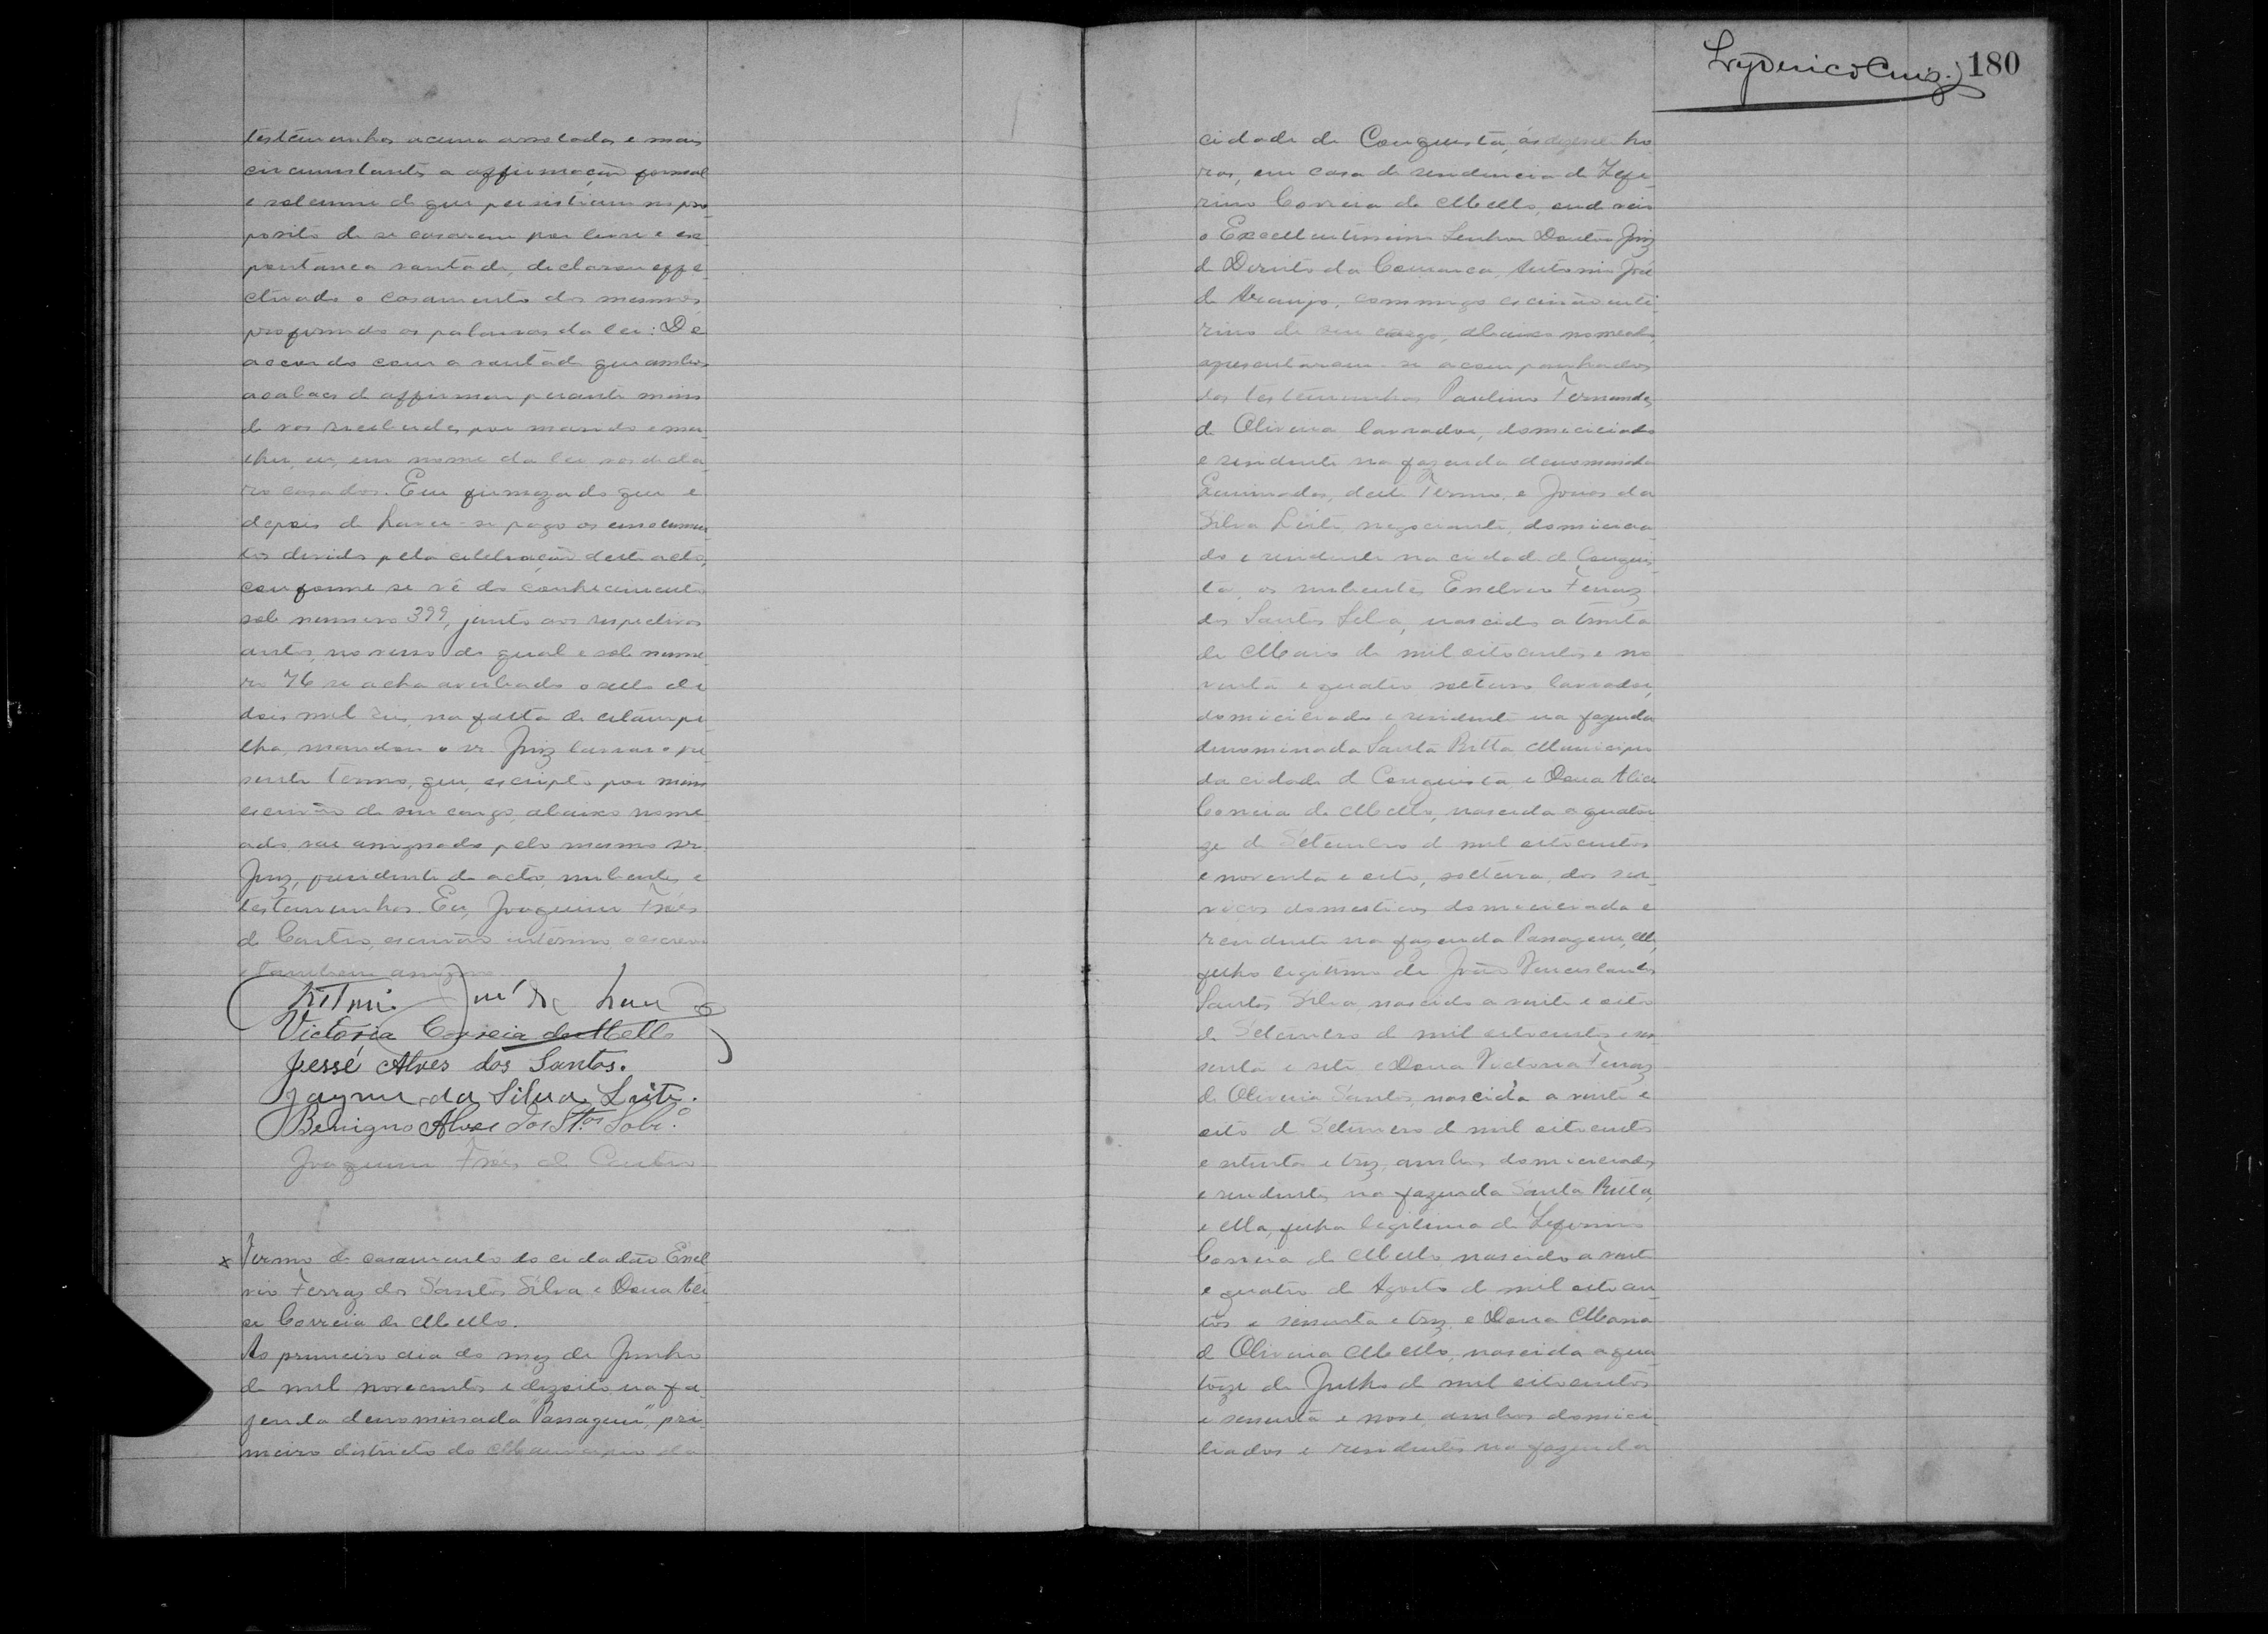 testemunhas acima arroladas e mais
circumstantes a affirmação formal
e solemne de que persistiam no pro-
posito de se casarem por livre e es-
pontanea vontade, declarou effe-
ctuado o casamento dos mesmos
proferindo as palavras da lei: De
accordo com a vontade que ambos
acabaes de affirmar perante mim
de vos receberdes por marido e mu-
lher, eu, em nome da lei vos decla-
ro casados. Em firmeza do que e
depois de haver-se pago os emolumen-
tos devidos pela celebração deste acto,
conforme se vê do conhecimento
sob numero 399, junto aos respectivos
autos, no verso do qual e sob nume-
ro 76 se acha averbado o sello de
dois mil reis, na falta de estampi-
lha, mandou o sr. Juiz lavrar o pre-
sente termo, que, escripto por mim
escrivão de seu cargo, abaixo nome-
ado, vae assignado pelo mesmo sr.
Juiz, presidente do acto, nubentes e
testemunhas. Eu, Joaquim Fróes
de Castro, escrivão interino, o escrevi
e tambem assigno.
Victoria Correia de Mello
Jessé Alves dos Santos.
Jayme da Silva Leite.
Benigno Alves dos Stos. Sobr.o
Joaquim Fróes de Castro
x Termo de casamento do cidadão Enel-
vio Ferraz dos Santos Silva e Dona Ali-
ce Correia de Mello.
Ao primeiro dia do mez de Junho
de mil novecentos e dezoito na fa-
zenda denominada "Passagem", pri-
meiro districto do Municipio da
Lyderico Cruz. 180
cidade de Conquista, ás dezesete ho-
ras, em casa de residencia de Zefe-
rino Correia de Mello, onde veio
o Excellentissimo Senhor Doutor Juiz
de Direito da Comarca, Antonio José
de Araujo, commigo escrivão inte-
rino de seu cargo, abaixo nomeado,
apresentaram-se acompanhados
das testemunhas Paulino Fernandes
de Oliveira lavrador, domiciliado
e residente na fazenda denominada
deste Termo, e Jonas da
Silva Leite, negociante, domicilia-
do e residente na cidade de Conquis-
ta, os nubentes Enelvio Ferraz
dos Santos Silva, nascido a trinta
de Maio de mil oitocentos e no-
venta e quatro, solteiro lavrador,
domiciliado e residente na fazenda
denominada Santa Ritta Municipio
da cidade de Conquista e Dona Alice
Correia de Mello, nascida a quator-
ze de Setembro de mil oitocentos
e noventa e oito, solteira, dos ser-
viços domesticos domiciliada e
residente na fazenda Passagem, elle,
filho legitimo de João Venceslau dos
Santos Silva nascido a vinte e oito
de Setembro de mil oitocentos e ses-
senta e sete e Dona Victoria Ferraz
de Oliveira Santos, nascida a vinte e
oito de Setembro de mil oitocentos
e setenta e trez, ambos domiciliados
e residentes na fazenda Santa Ritta,
e ella, filha legitima de Zeferino
Correia de Mello, nascido a vinte
e quatro de Agosto de mil oitocen-
tos e sessenta e trez e Dona Maria
de Oliveira Mello, nascida a qua-
torze de Julho de mil oitocentos
e sessenta e nove, ambos domici-
liados e residentes na fazenda